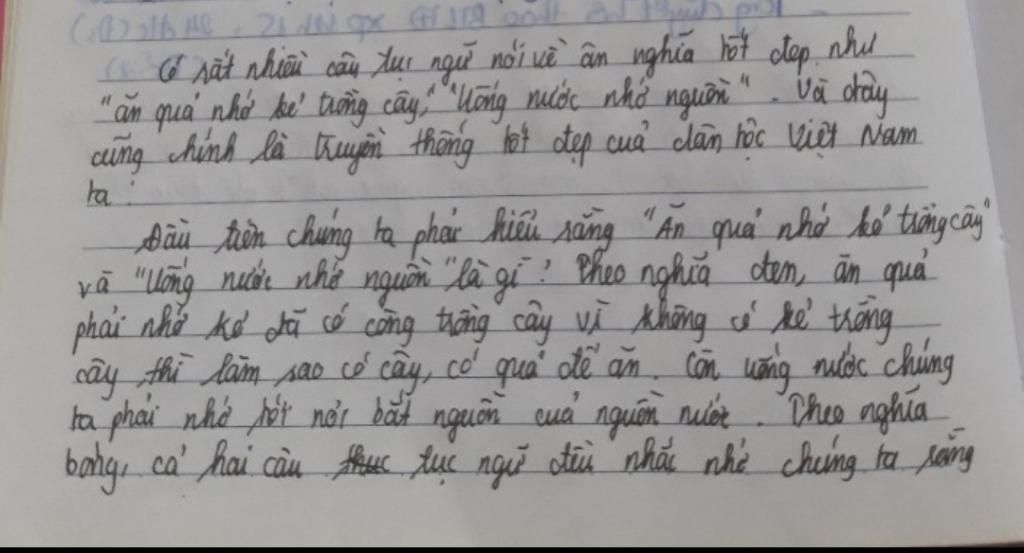 Có rất nhiều câu tục ngữ nói về ân nghĩa tốt đẹp như
"ăn quả nhớ kẻ trồng cây," "Uống nước nhớ nguồn". Và đây
cũng chính là truyền thống tốt đẹp của dân tộc Việt Nam
ta.
Đầu tiên chúng ta phải hiểu rằng "Ăn quả nhớ kẻ trồng cây"
và "Uống nước nhớ nguồn" là gì? Theo nghĩa đen, ăn quả
phải nhớ kẻ đã có công trồng cây vì không có kẻ trồng
cây thì làm sao có cây, có quả để ăn. Còn uống nước chúng
ta phải nhớ tới nơi bắt nguồn của nguồn nước. Theo nghĩa
bóng, cả hai câu tục ngữ đều nhắc nhở chúng ta rằng